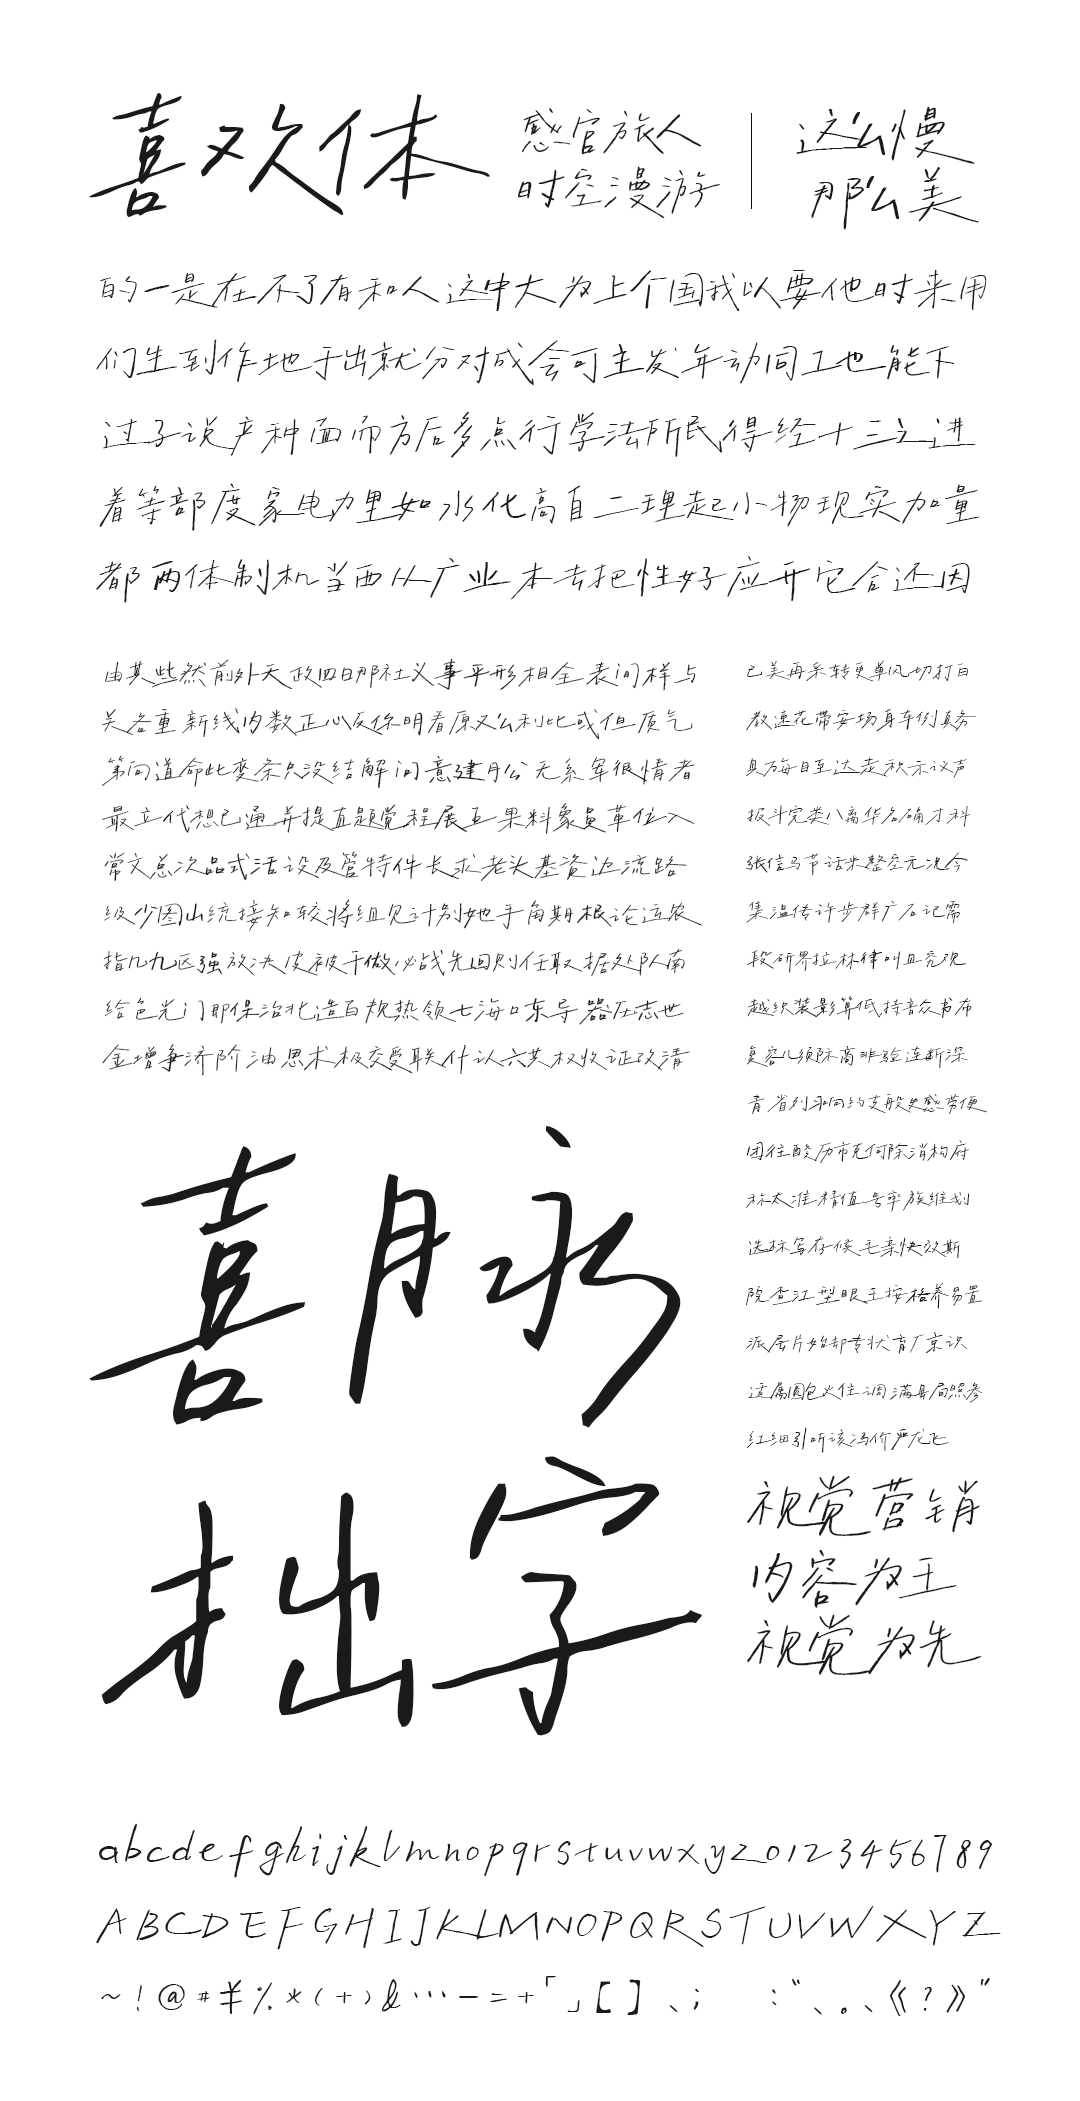 喜欢体
感官旅人
时空漫游
这么慢
那么美
的一是在不了有和人这中大为上个国我以要他时来用
们生到作地于出就分对成会可主发年动同工也能下
过子说产种面而方后多点行学法所民得经十三之进
着等部度家电力里如水化高自二理起小物现实加量
都两体制机当西从广业本去把性好应开它合还因
由其些然前外天政四日那社义事平形相全表间样与
关各重新线内数正心反你明看原又么利比或但质气
第向道命此变条只没结解问意建月公无系军很情者
最立代想已通并提直题党程展五果料象员革位入
常文总次品式活设及管特件长求老头基资边流路
级少图山统接知较将组见计别她手角期根论运农
指几九区强放决皮被干做必战先回则任取据处队南
给色光门即保治北造百规热领七海口东导器压志世
金增争济阶油思术极交受联什认六共权收证改清
己美再采转更单风切打白
教速花带安场身车例真务
具万每目至达走积示议声
报斗完类八离华名确才科
张信马节话米整空元况今
集温传许步群广石记需
段研界拉林律叫且究观
越织装影算低持音众书布
复容儿须际商非验连断深
青省列永响约支般史感劳便
团往酸历市克何除消构府
称太准精值号率族维划
选标写存候毛亲快效斯
院查江型眼王按格养易置
派层片始却专状育厂京识
这属圆包火住调满县局照参
红细引听该冯价严龙飞
喜月永
拙字
视觉营销
内容为王
视觉为先
abcdefghijklmnopqrstuvwxyz0123456789
ABCDEFGHIJKLMNOPQRSTUVWXYZ
~!@#¥%*(+)&…-=+「」【】、; :“、。、《?》”